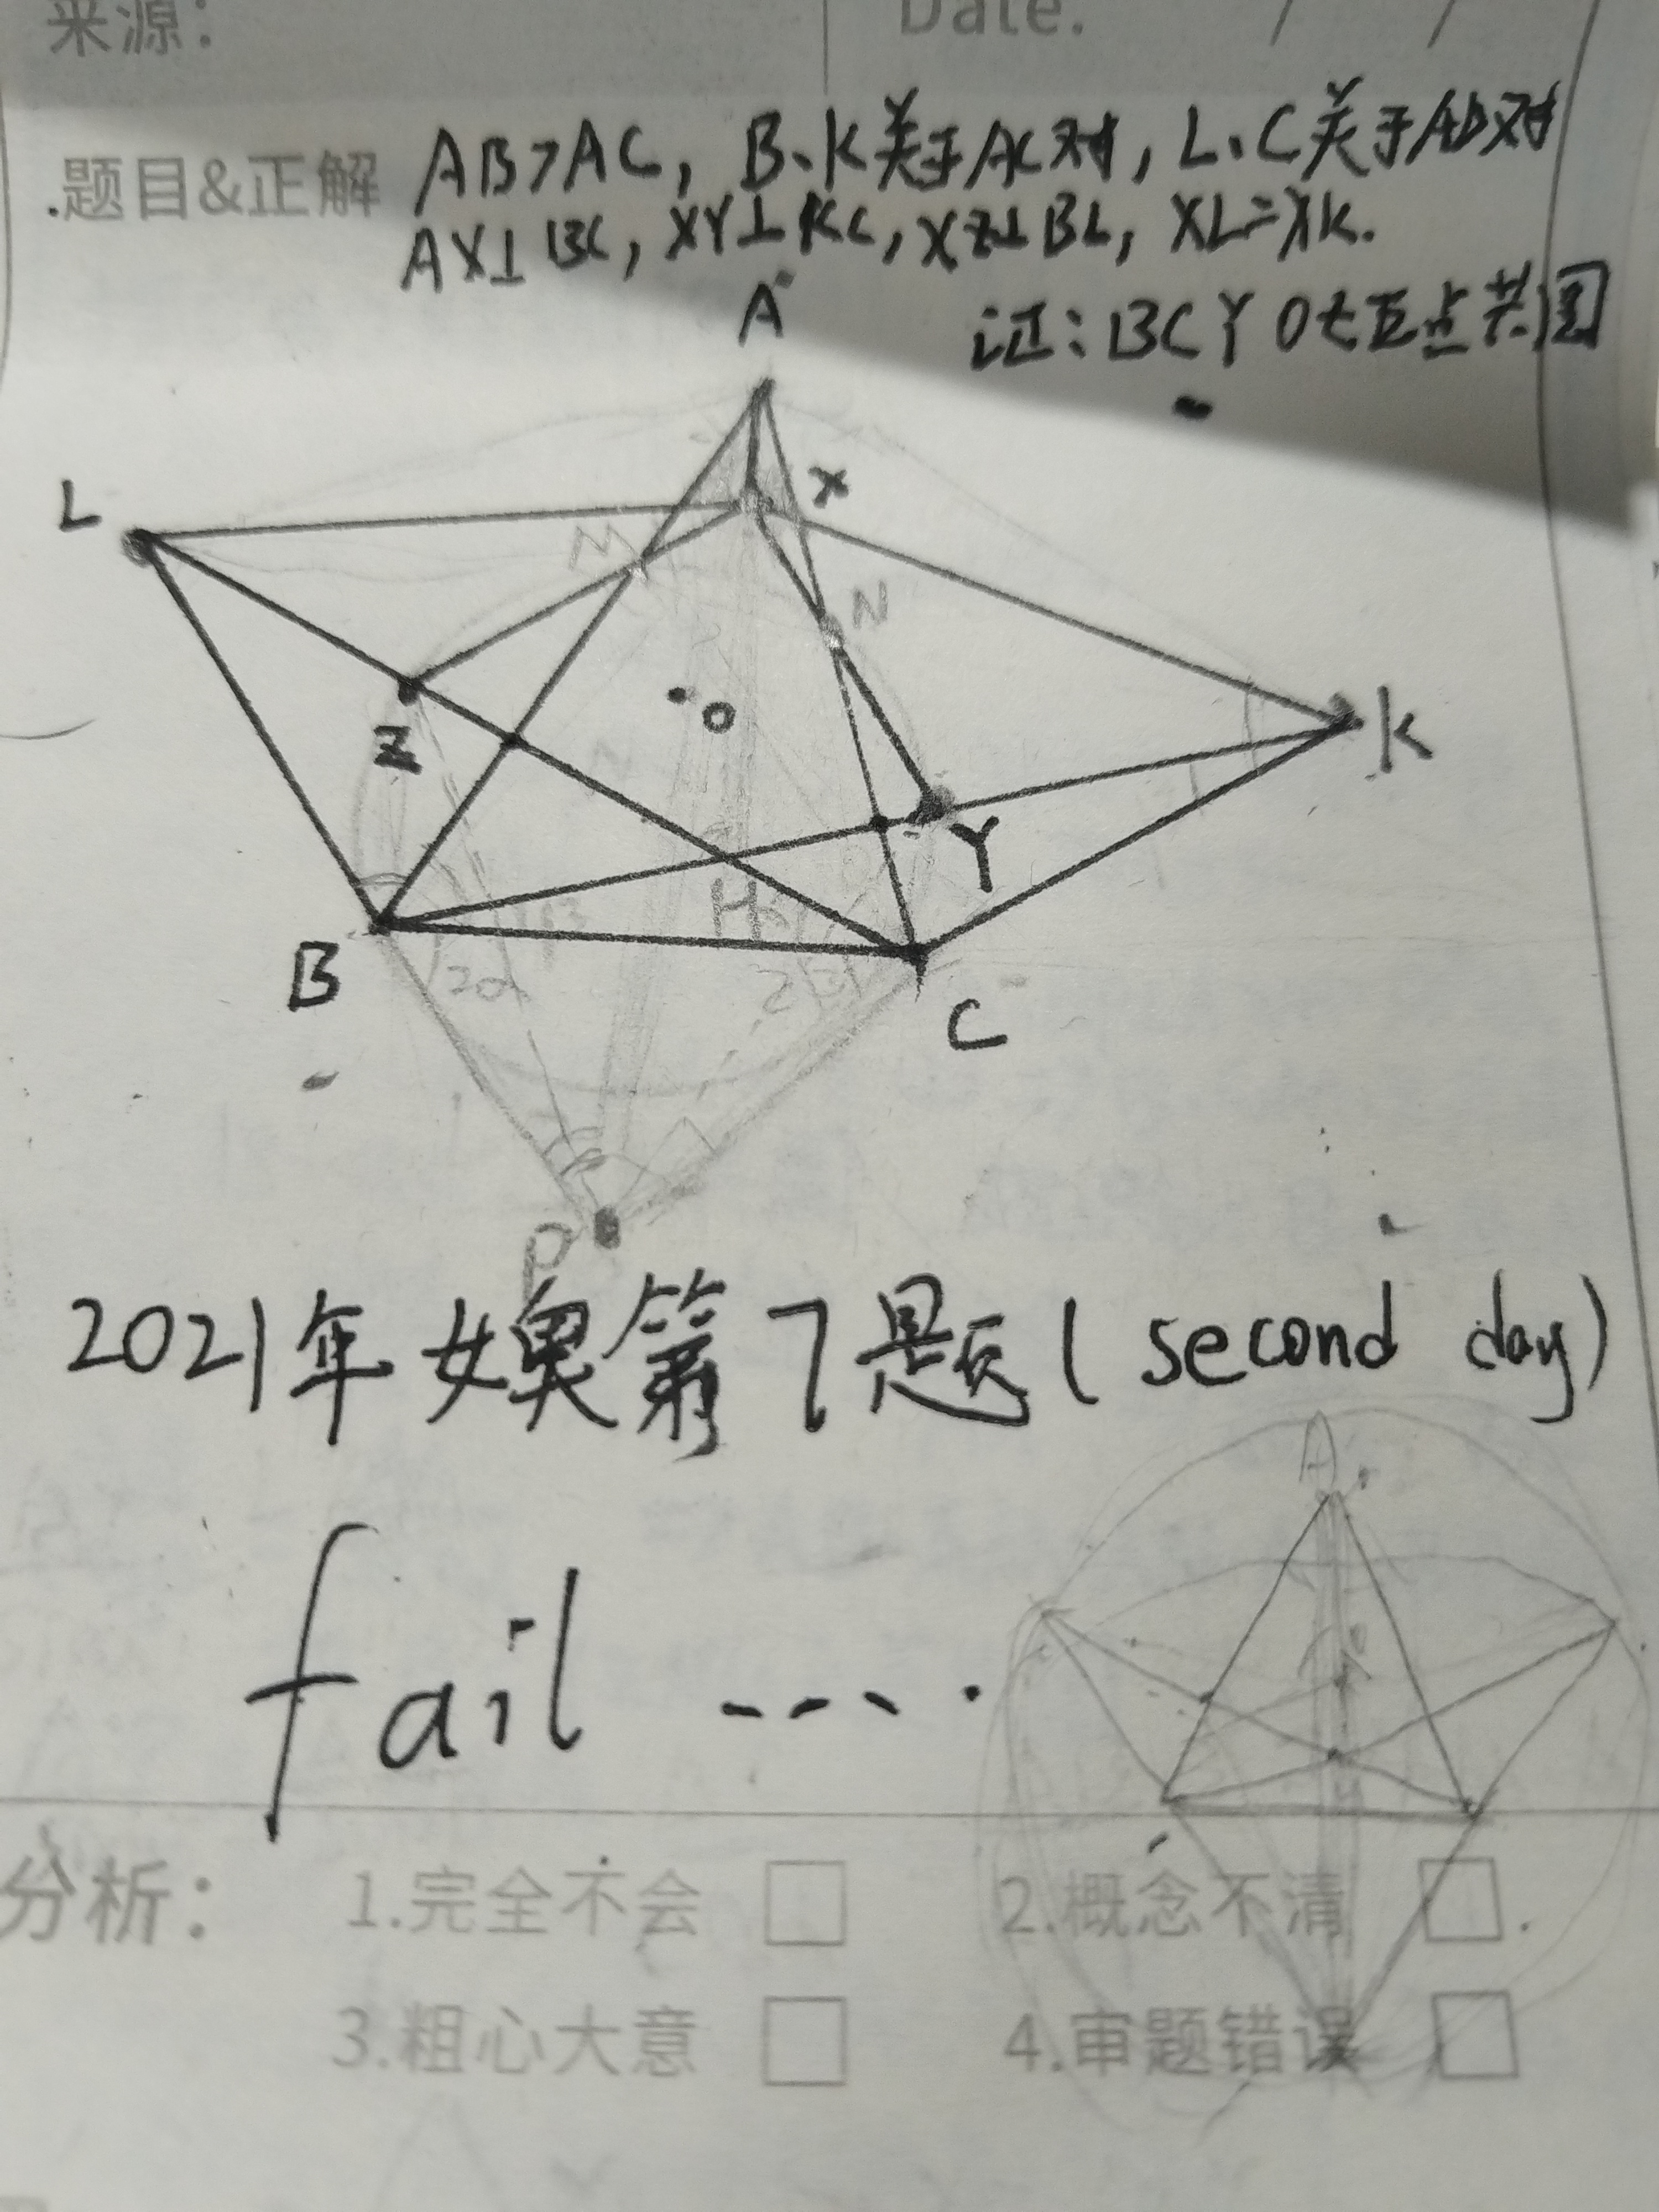 来源: Date. / /
.题目&正解 AB>AC, B、K关于AC对, L、C关于AB对
AX⊥BC, XY⊥KC, XZ⊥BL, XL=XK.
证: BCYOZ五点共圆
A
X
L
M
N
Z
O
K
Y
H
B
2α
C
P
2021年女奥第7题(second day)
A
fail .....
分析: 1.完全不会 □ 2.概念不清 □.
3.粗心大意 □ 4.审题错误 □